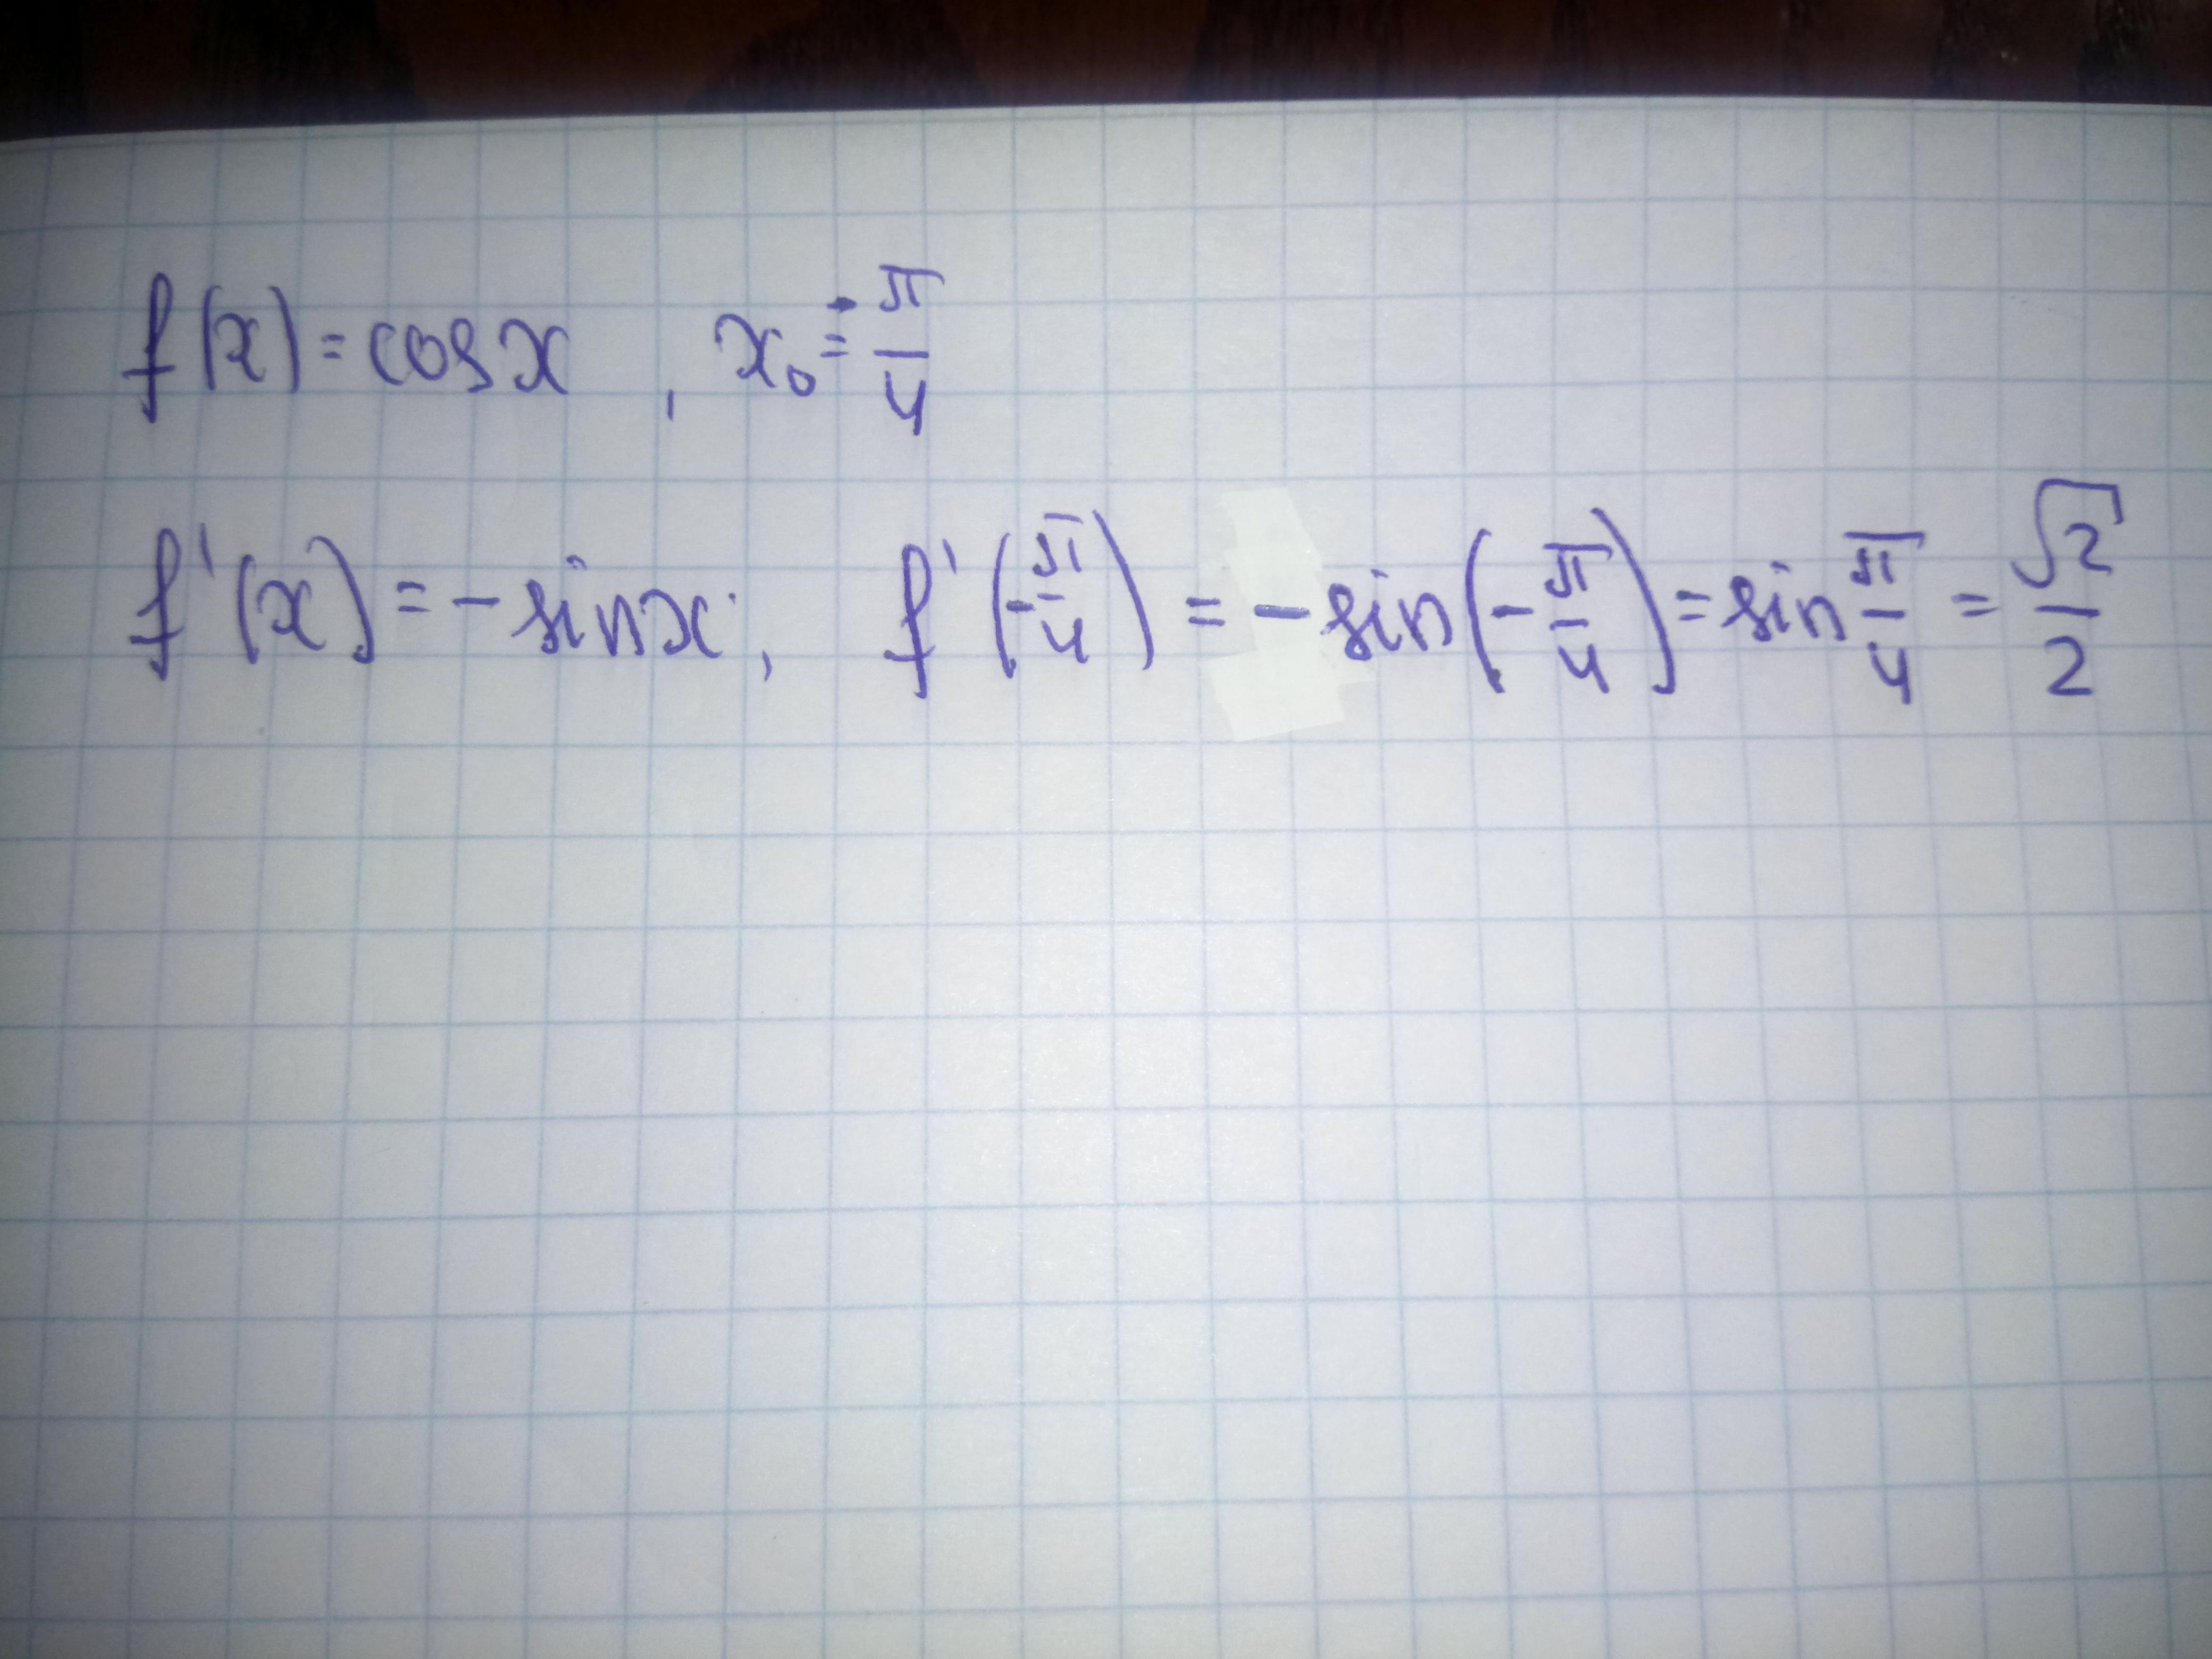 f(x) = cos x , x₀ = π/4
f'(x) = -sin x, f'(-π/4) = -sin(-π/4) = sin π/4 = √2/2